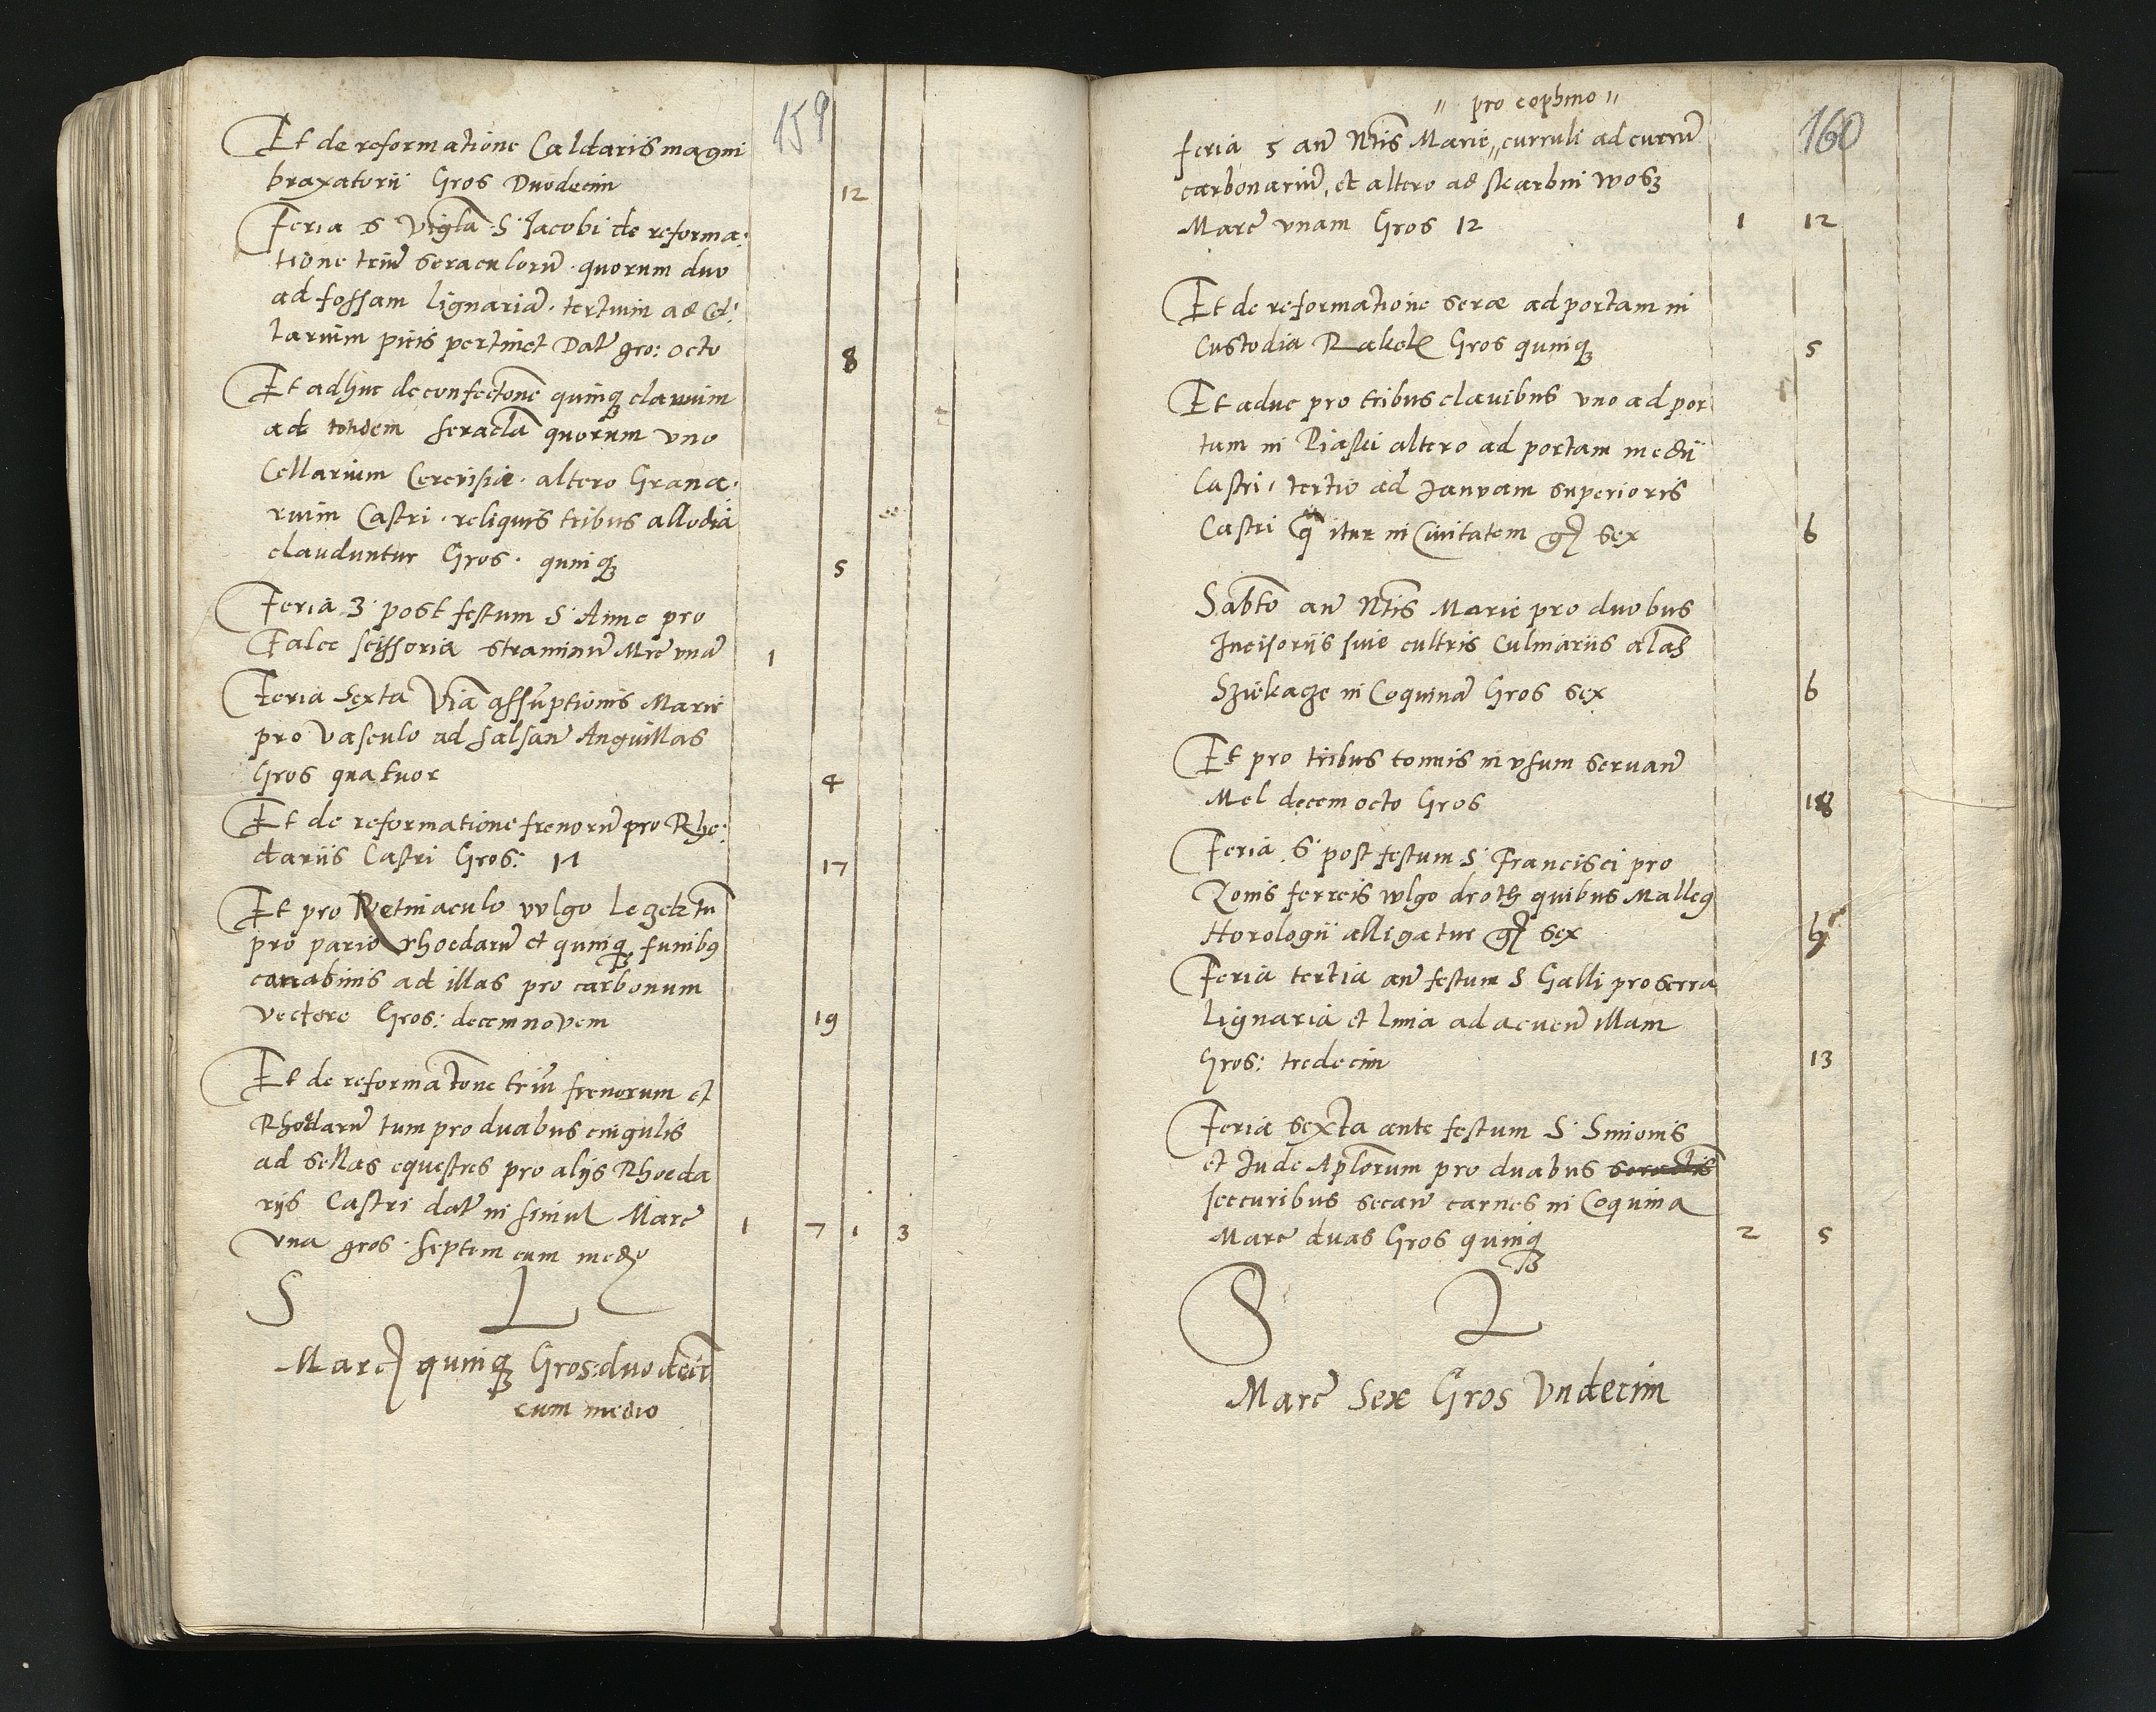 159
Et de reformatione Caldaris magni
braxatorii Gros Duodecim 12
Feria 6 Vigla S Jacobi de reforma:
tione triū seraculorū quorum duo
ad fossam lignariā tertium ad Cel:
larium picis pertinet Dat gro: octo 8
Et adhuc de confectone quinq clavium
ad totidem seracla quorum uno
Cellarium Cerevisie altero Grana
rium Castri reliquis tribus allodia
clauduntur Gros quinq 5
Feria 3 post festum S Anne pro
Falce scissoria straminū Mrc unā 1
Feria Sexta Via assūptionis Marie
pro Vasculo ad salsan Anguillas
Gros quatuor 4
Et de reformatione frenorū pro Rhe:
dariis Castri Gros: 17 17
Et pro Retinaculo vulgo
pro pario rhoedarū et quinq funibq
canabinis ad illas pro carbonum
vectore Gros: decemnovem 19
Et de reformatone triū frenorum et
Rhoedarū tum pro duabus cingulis
ad sellas equestres pro alijs Rhoeda
rijs Castri dat in simul Marc
una gros septem cum medo 1 7 1 3
S L
Marc quinq Gros: duodeci
cum medio
160
" pro cophino "
feria 5 an Ntis Marie " curruli ad currū
carbonariū, et altero ad skarbni wosz
Marc unam Gros 12 1 12
Et de reformatione serae ad portam in
Custodia Gros quinq 5
Et aduc pro tribus clavibus uno ad por
tam in Piaski altero ad portam medii
Castri, tertio ad Januam superioris
Castri q itur in Civitatem g sex 6
Sabto an Ntis Marie pro duobus
Incisoriis sive cultris Culinariis alas
Sziekacze in Coquinā Gros sex 6
Et pro tribus tonnis in usum servan
Mel decem octo Gros 18
Feria 6 post festum S Francisci pro
Zonis ferreis wlgo droth quibus Malleq
Horologii alligatur g sex 6
Feria tertia an festum S Galli pro serra
Lignaria et lima ad acuen illam
Gros: tredecim 13
Feria Sexta ante festum S Simonis
et Jude Aplorum pro duabus seraclis
seccuribus secan carnes in Coquina
Marc duas Gros quinq 2 5
S L
Marc Sex Gros Undecim